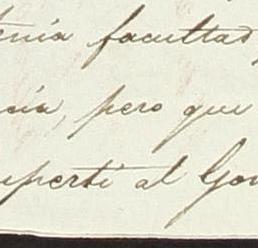 tenia facultad,
nia, pero que
uperti al Gov